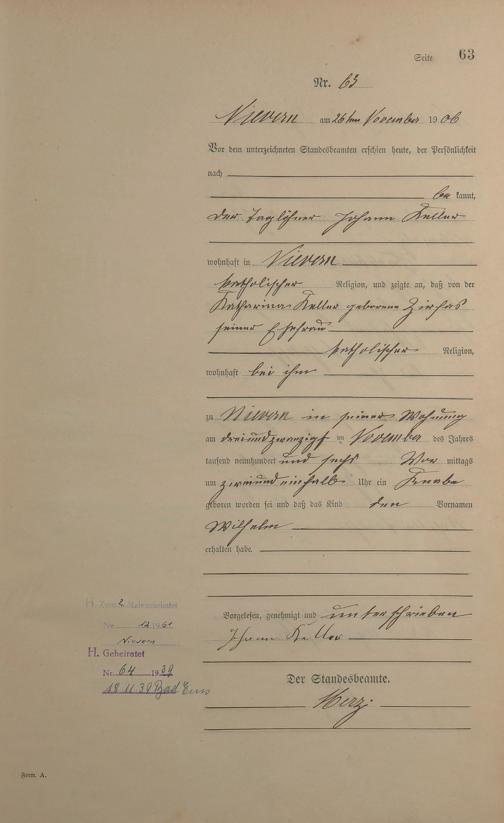 Seite 63
Nr. 63
Nievern am 26ten November 1906
Vor dem unterzeichneten Standesbeamten erschien heute, der Persönlichkeit
nach
be kannt,
der Taglöhner Johann Keller
wohnhaft in Nievern
katholischer Religion, und zeigte an, daß von der
Katharina Keller geborene Zirfas
seiner Ehefrau
katholischer Religion,
wohnhaft bei ihm
zu Nievern in seiner Wohnung
am dreiundzwanzigst en November des Jahres
tausend neunhundert und sechs Vor mittags
um zweiundeinhalb Uhr ein Knabe
geboren worden sei und daß das Kind den Vornamen
Wilhelm
erhalten habe.
Vorgelesen, genehmigt und unterschrieben
Johann Keller
Der Standesbeamte.
Merz
H. Zum 2. Mal verheiratet
Nr. 12 1961
Nievern
H. Geheiratet
Nr. 64 1939
18.11.39 Bad Ems
Form. A.